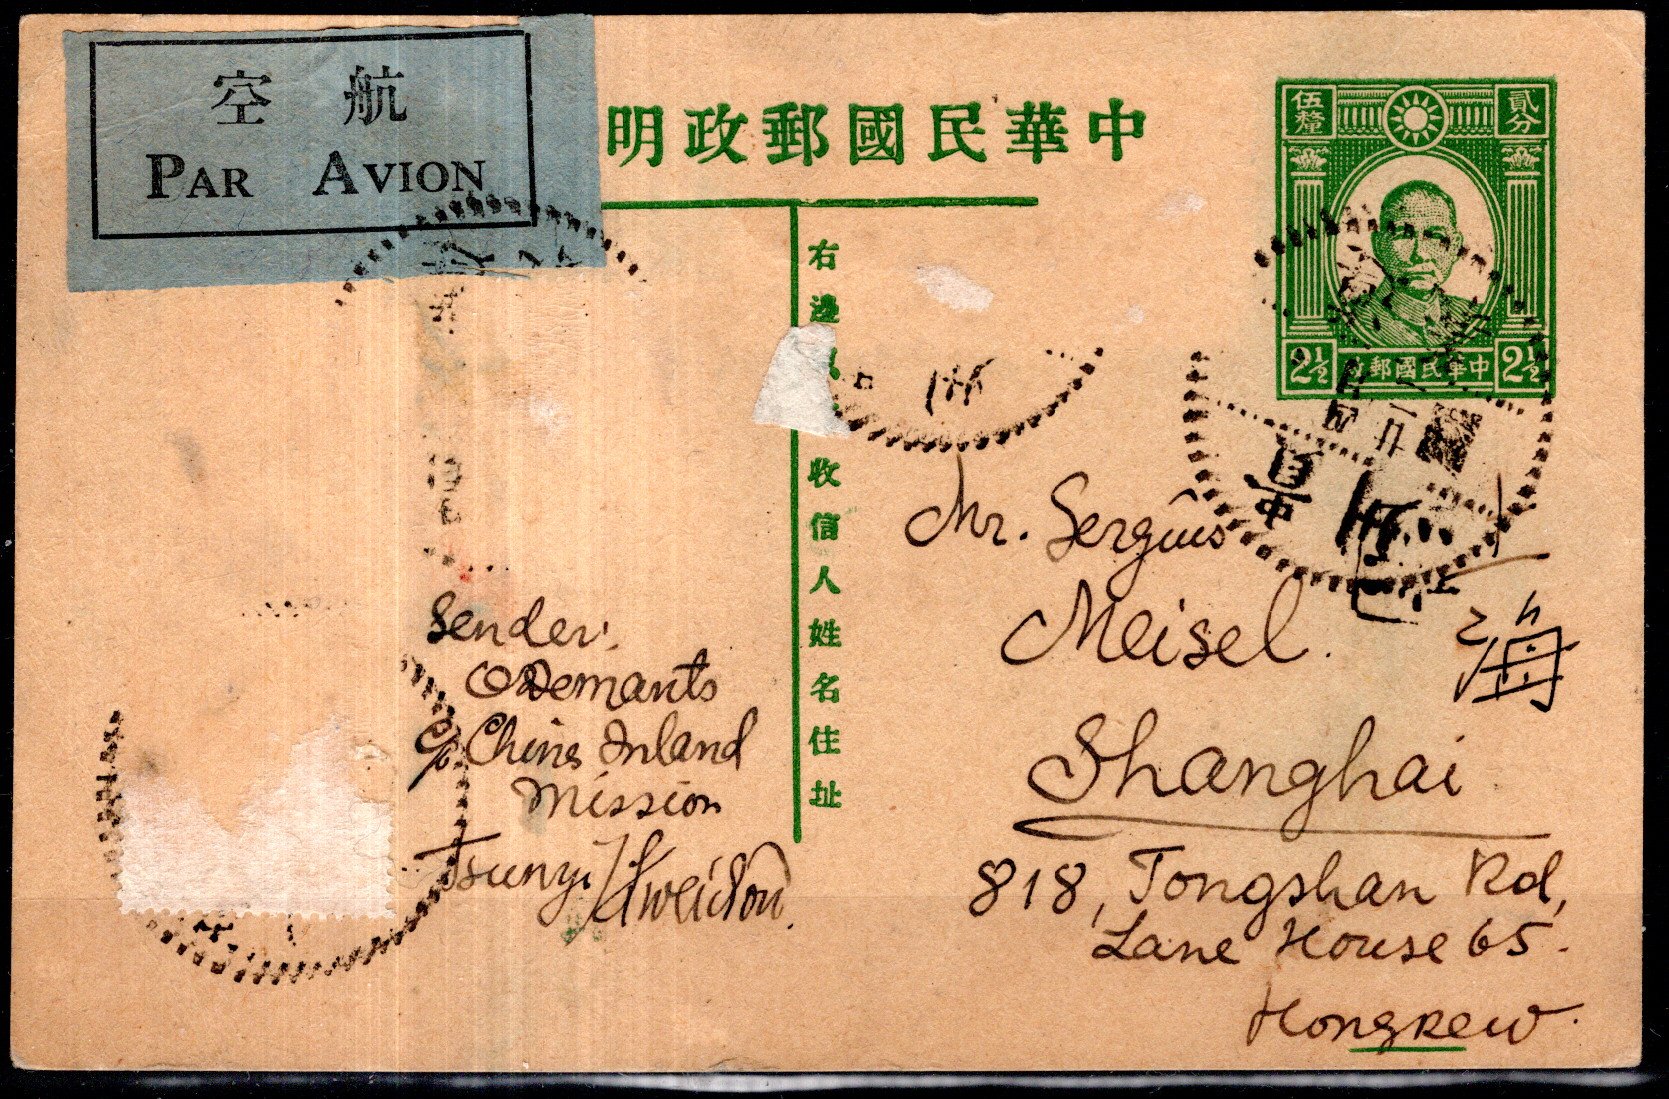 航空
PAR AVION
中華民國郵政明
貳分
伍釐
中華民國郵政
2½
2½
右邊
收信人姓名住址
Mr. Sergius
Meisel.
上
海
Shanghai
818, Tongshan Rd,
Lane House 65.
Hongkew.
Sender:
Demants
c/o. China Inland
Mission
Tsunyi/Kweichou.